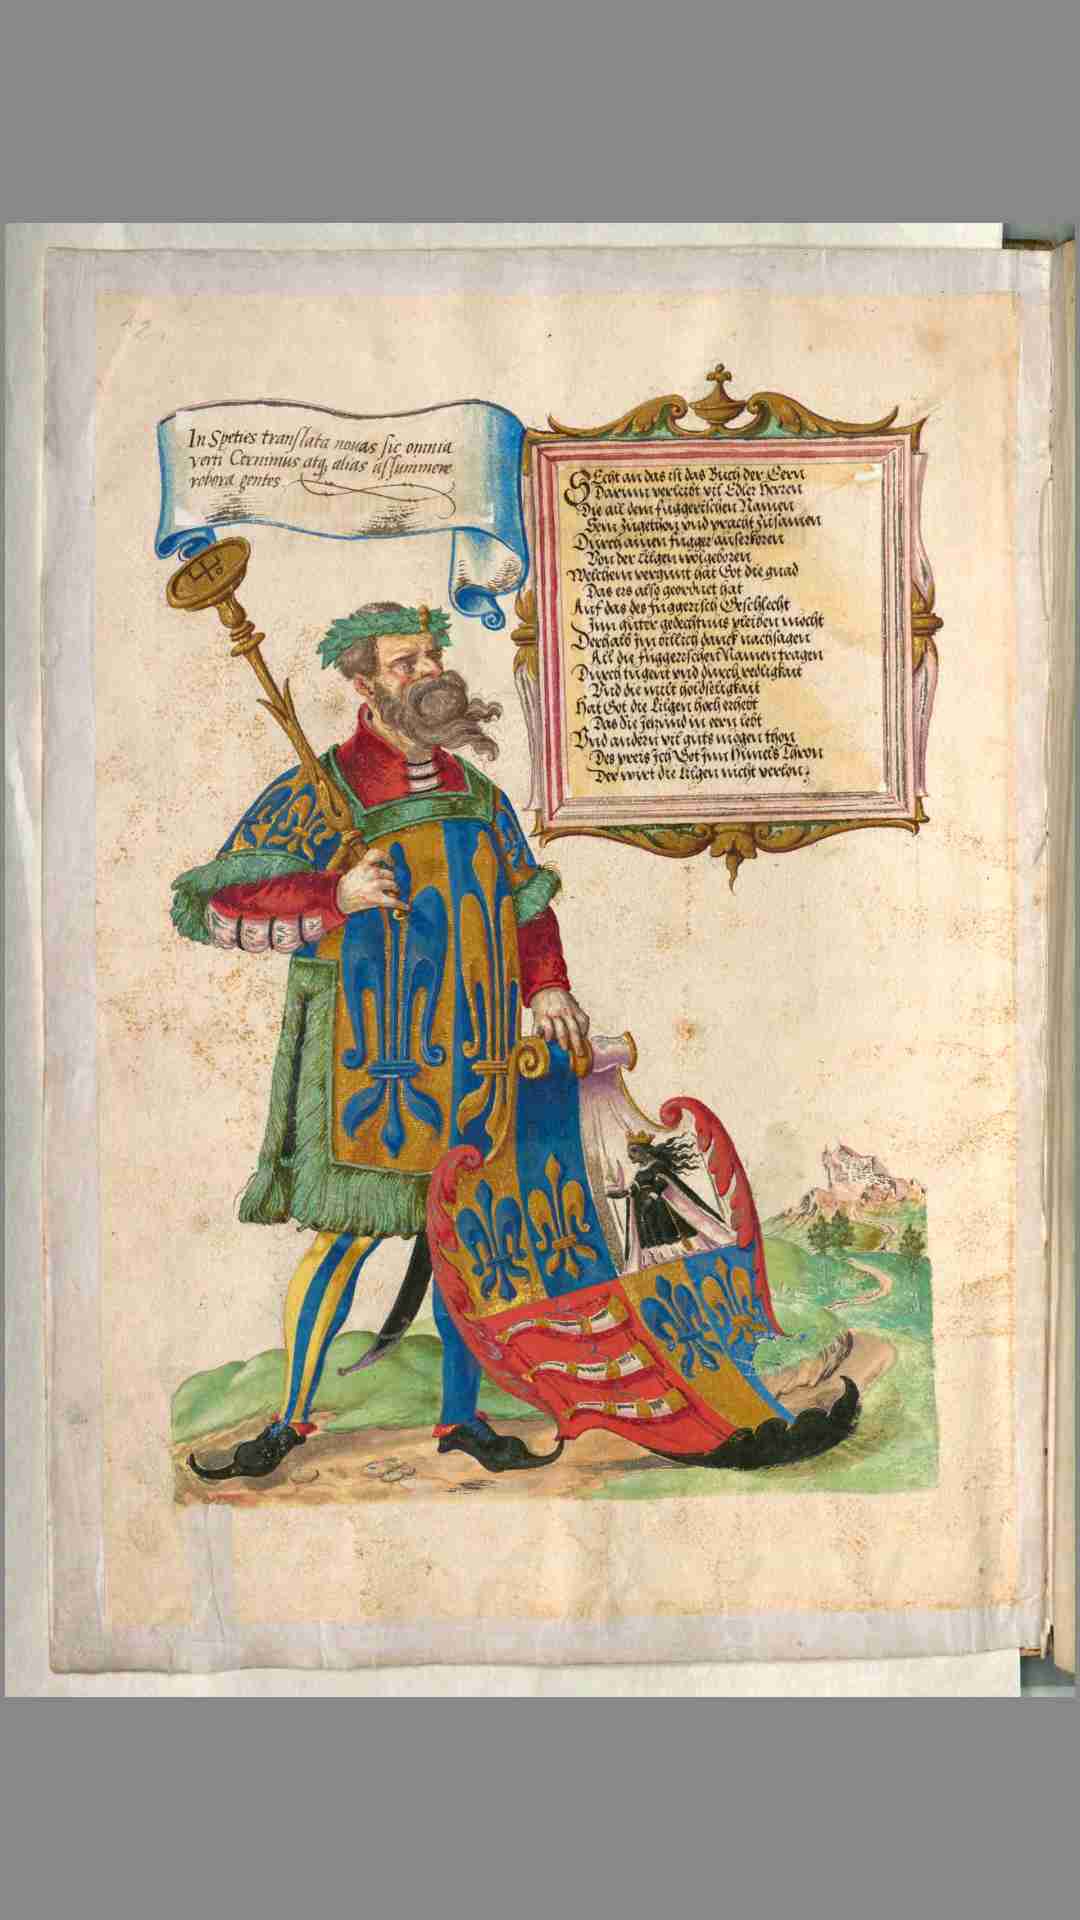 In Speties translata novas sic omnia
verti Cernimus atq, alias assummere
robora gentes.
SEcht an das ist das Buch der Eern
Darinn verleibt vil Edler Herren
Die all dem fuggerischen Namen
Sein zugethon vnd pracht zusamen
Durch ainen fugger auserkoren
Von der Lilgen wolgeboren
Welchem vergunt hat Got die gnad
Das ers also geordnet hat
Auf das des fuggerisch Geschlecht
Inn guter gedechtnus pleiben möcht
Derhalb im billich danck nachsagen
All die fuggerischen Namen tragen
Durch tugent vnd durch redligkait
Vnd die milt holdseligkait
Hat Got die Lilgen hoch erhebt
Das die jetzund in eern lebt
Vnd andern vil guts mögen thon
Des preis Ich Got Inn Himels Thron
Der wirt die Lilgen nicht verlon